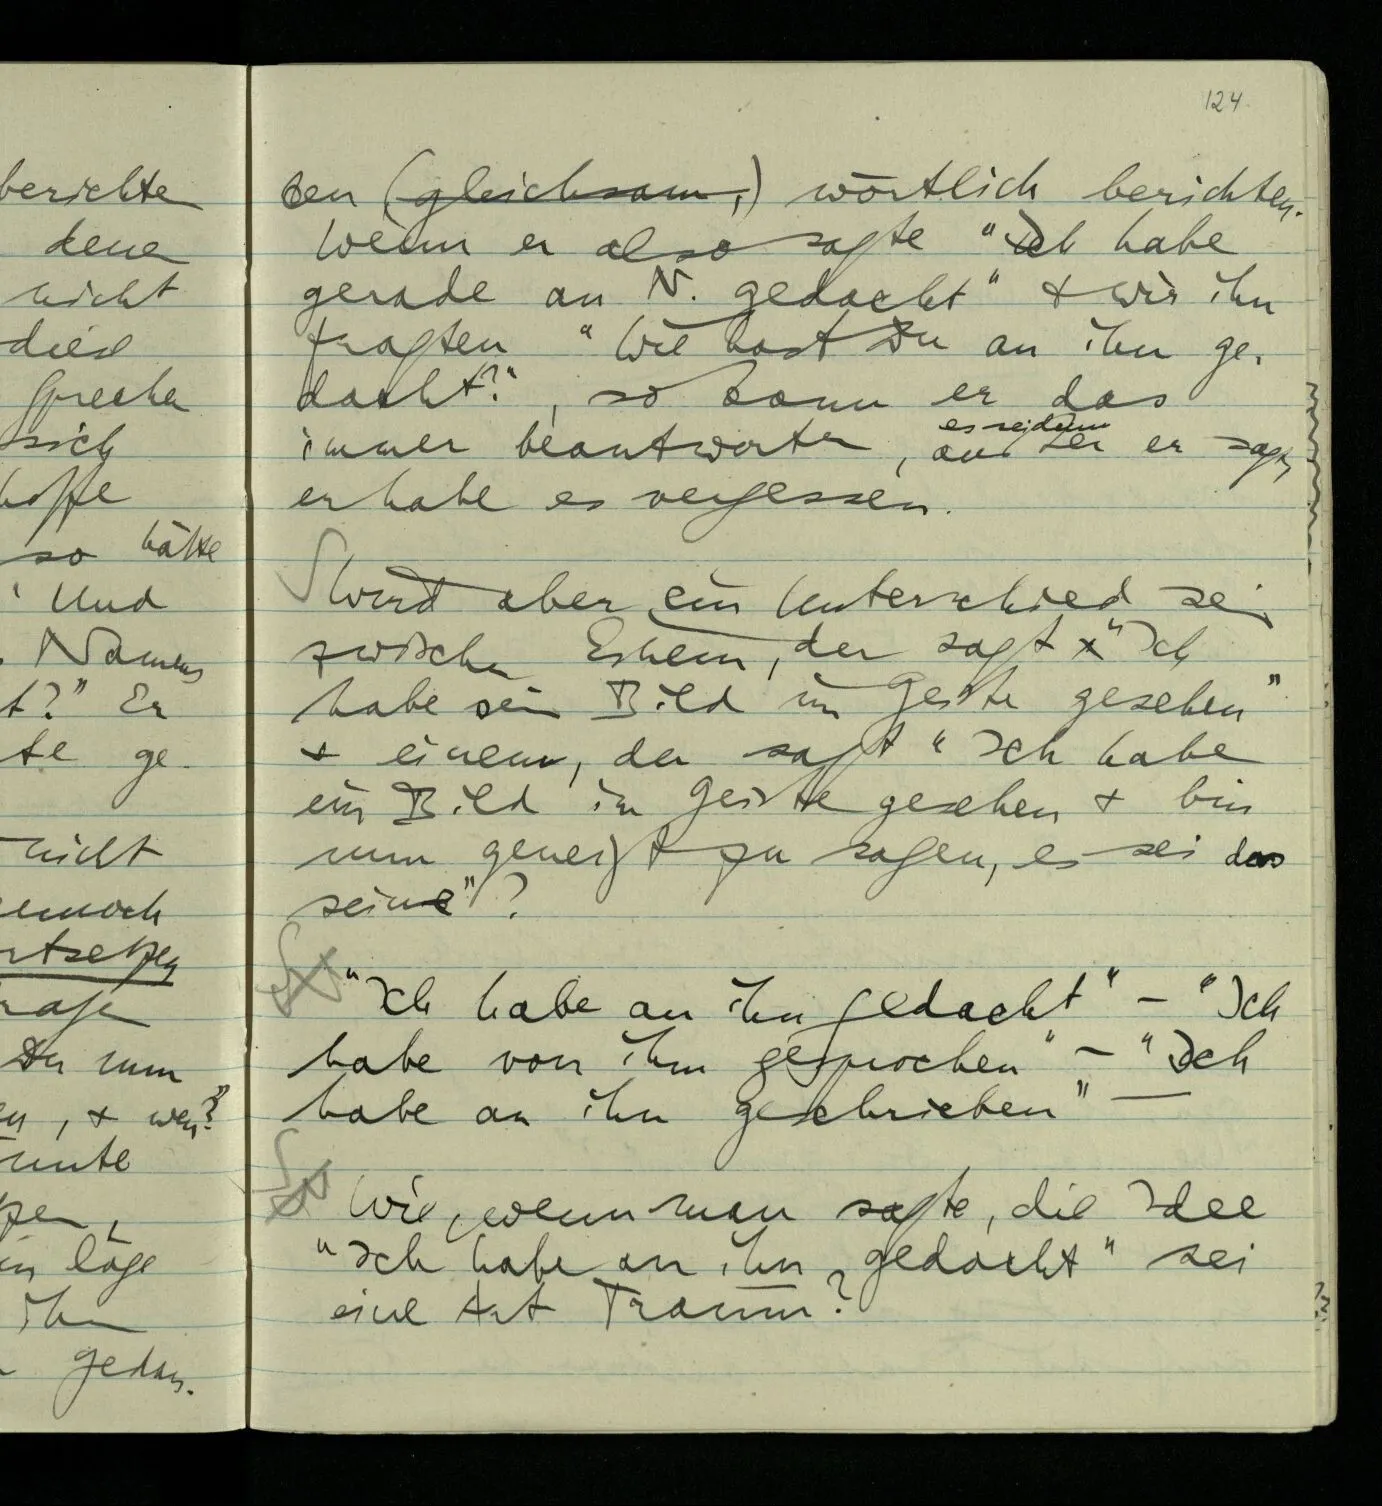 124
berichte
dene
nicht
diese
Spreche
sich
hoffe
so hätte
Und
Namens
t?" Er
te ge-
nicht
ennoch
rtsetzen
rage
Du nun
en, + wen?"
nnte
zen,
in läge
ihn
gedan-
ken (gleichsam,) wörtlich berichten.
Wenn er also sagte "Ich habe
gerade an N. gedacht" + wir ihn
fragten "Wie hast Du an ihn ge-
dacht?", so kann er das
immer beantworten, es sei denn außer er sagt,
er habe es vergessen.
Wird aber ein Unterschied sein
zwischen Einem, der sagt "Ich
habe sein Bild im Geiste gesehen"
+ einem, der sagt "Ich habe
ein Bild im Geiste gesehen + bin
nun geneigt zu sagen, es sei das
seine"?
"Ich habe an ihn gedacht" – "Ich
habe von ihm gesprochen" – "Ich
habe an ihn geschrieben" —
Wie, wenn man sagte, die Idee
"Ich habe an ihn gedacht" sei
eine Art Traum?